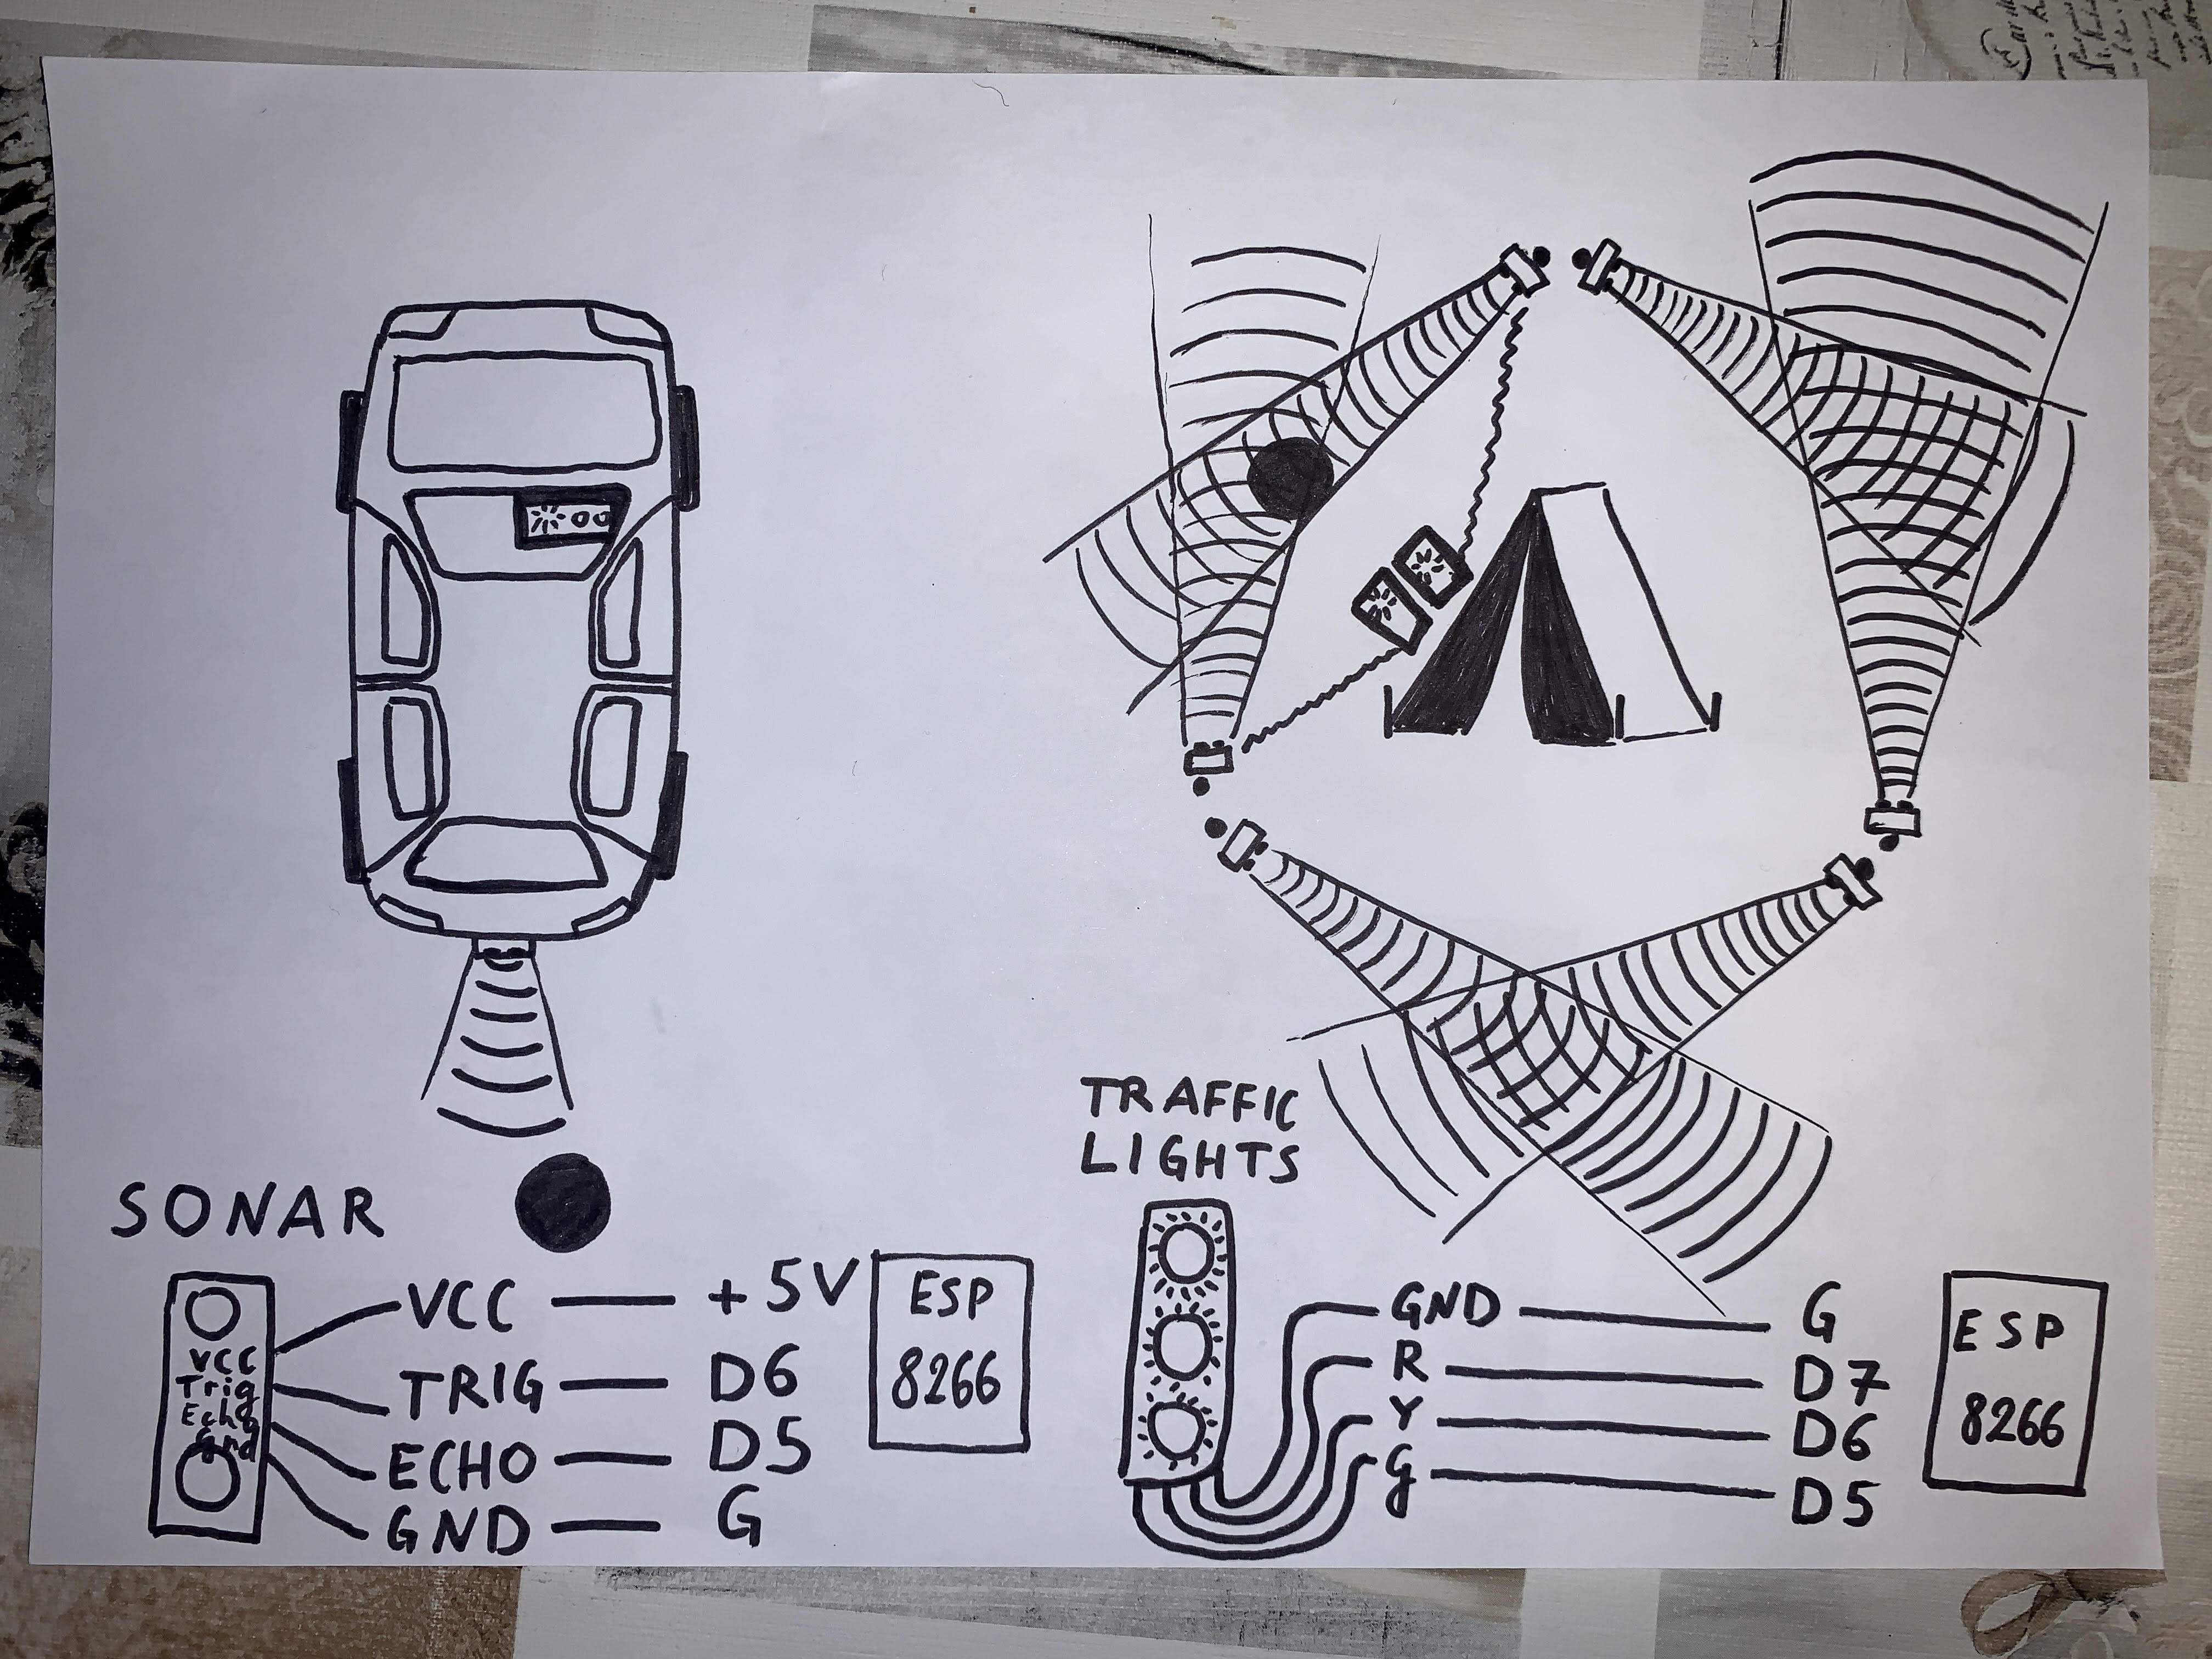 SONAR
VCC
Trig
Echo
Gnd
VCC — +5V
TRIG — D6
ECHO — D5
GND — G
ESP
8266
TRAFFIC
LIGHTS
GND — G
R — D7
Y — D6
G — D5
ESP
8266